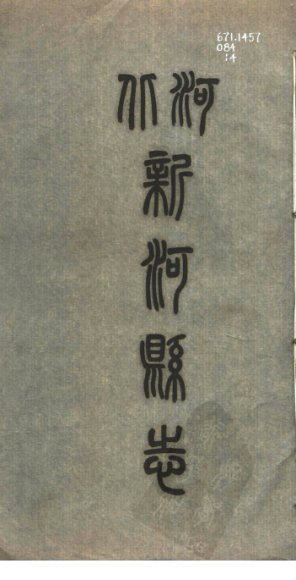 671.1457
084
:4
河北
新河縣志